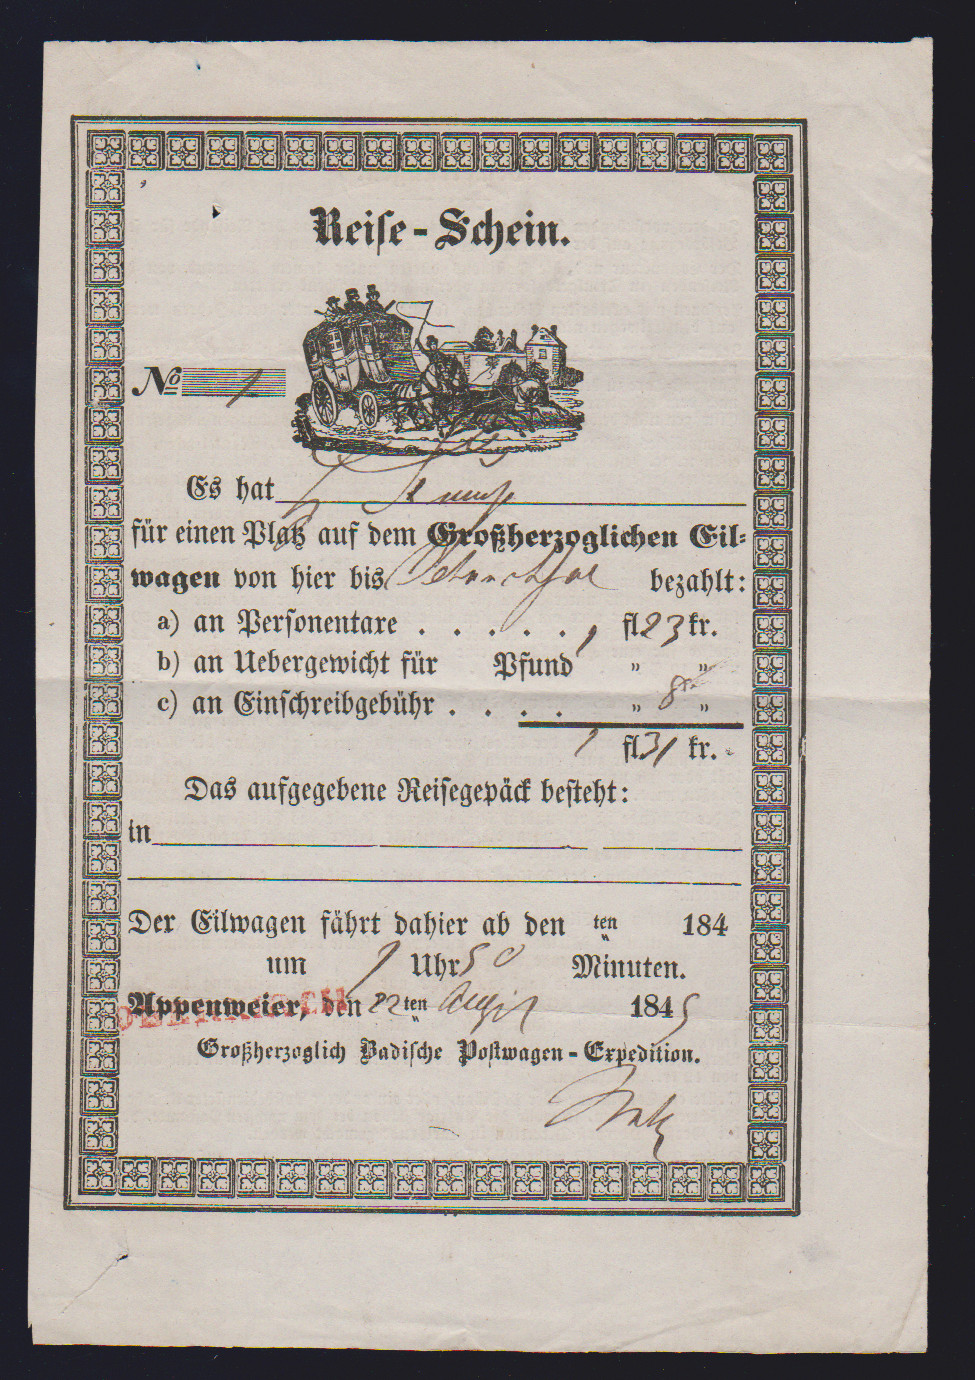 Reise-Schein.
No 1
Es hat
für einen Platz auf dem Großherzoglichen Eil-
wagen von hier bis bezahlt:
a) an Personentare . . . . . 1 fl. 23 kr.
b) an Uebergewicht für Pfund „ „
c) an Einschreibgebühr . . . . „ 8 „
1 fl. 31 kr.
Das aufgegebene Reisegepäck besteht:
in
Der Eilwagen fährt dahier ab den ten 184
um 1 Uhr 50 Minuten.
Appenweier, den 22ten August 1845
Großherzoglich Badische Postwagen-Expedition.